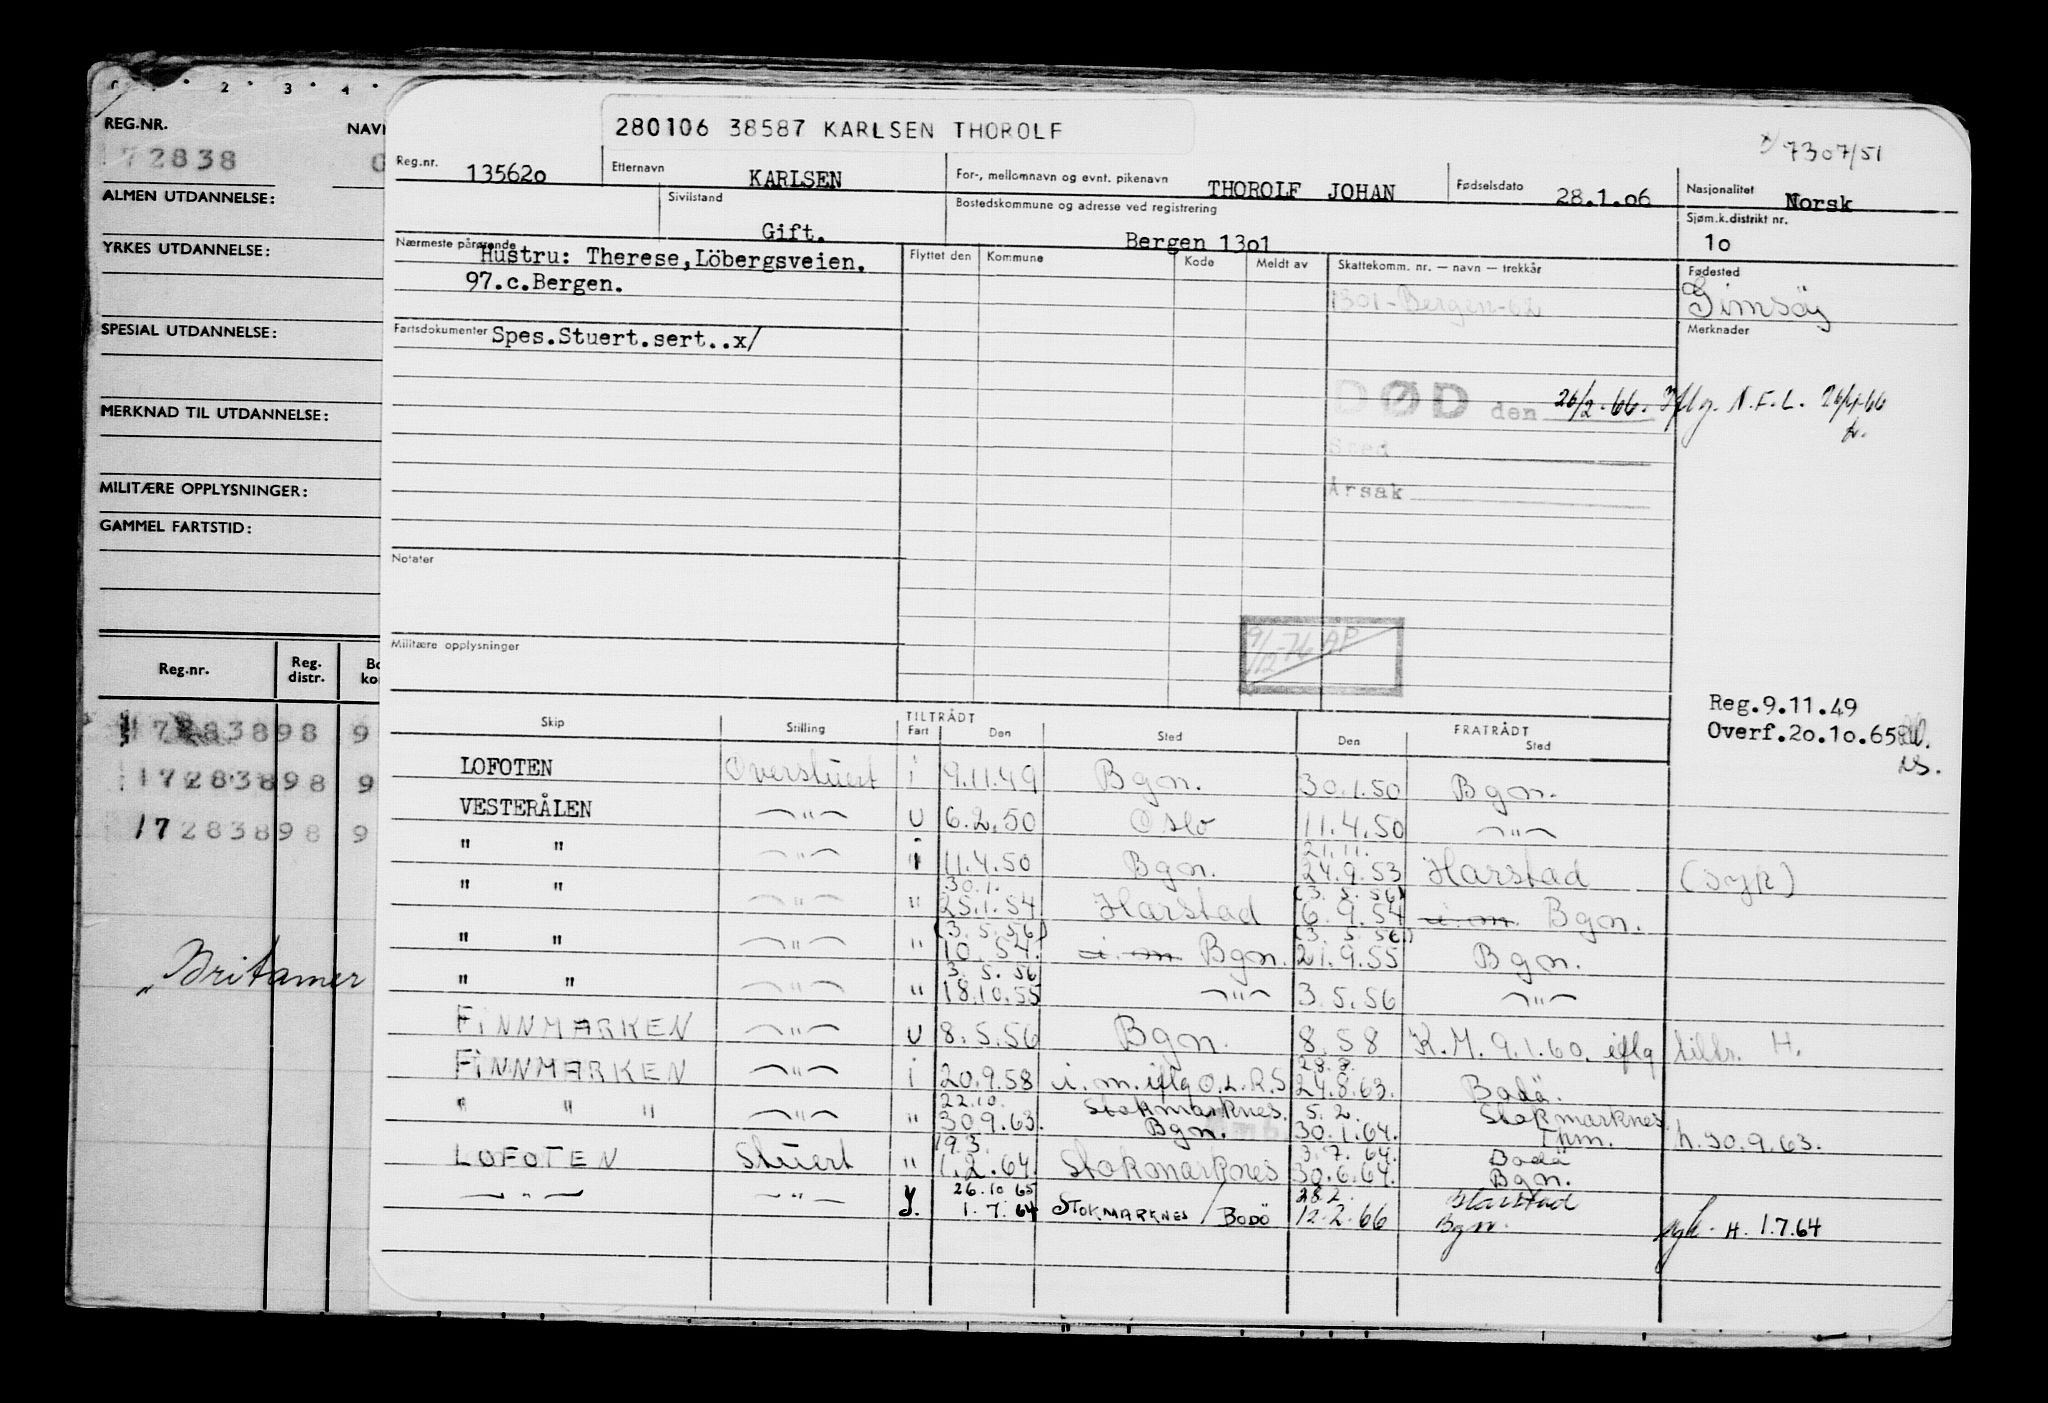 2 3 4
REG.NR. NAVN
172838
ALMEN UTDANNELSE:
YRKES UTDANNELSE:
SPESIAL UTDANNELSE:
MERKNAD TIL UTDANNELSE:
MILITÆRE OPPLYSNINGER:
GAMMEL FARTSTID:
Reg.nr. Reg. distr.
17283898 9
17283898 9
17283898 9
"Britamer
280106 38587 KARLSEN THOROLF
x) 7307/51
Reg.nr. 135620 Etternavn KARLSEN For-, mellomnavn og evnt. pikenavn THOROLF JOHAN Fødselsdato 28.1.06 Nasjonalitet Norsk
Sivilstand Gift. Bostedskommune og adresse ved registrering Bergen 1301 Sjøm.k.distrikt nr. 10
Nærmeste pårørende Hustru: Therese, Löbergsveien. Flyttet den Kommune Kode Meldt av Skattekomm. nr. — navn — trekkår Fødested
97.c.Bergen. 1301-Bergen-62 Gimsöy
Fartsdokumenter Spes.Stuert.sert..x/ Merknader
DØD den 26/2-66. Iflg. N.F.L.
Sted
Årsak
Notater
9/12-76 AP
Militære opplysninger
Reg.9.11.49
Overf.20.10.65
Skip Stilling TILTRÅDT Fart Den Sted FRATRÅDT Den Sted
LOFOTEN Overstuert i 9.11.49 Bgn. 30.1.50 Bgn.
VESTERÅLEN —"— u 6.2.50 Oslo 11.4.50 —"—
21.11.
" " —"— i 11.4.50 Bgn. 24.9.53 Harstad (syk)
30.1. (3.5.56)
" " —"— " 25.1.54 Harstad 6.9.54 i.m. Bgn.
(3.5.56) (3.5.56)
" " —"— " 10.54. i.m. Bgn. 21.9.55 Bgn.
3.5.56
" " —"— " 18.10.55 —"— 3.5.56 —"—
FINNMARKEN —"— u 8.5.56 Bgn. 8.58 K.M. 9.1.60. iflg tiltr. H.
28.8.
FINNMARKEN —"— i 20.9.58 i.m. iflg O.L.R.S 24.8.63. Bodö.
22.10. Stokmarknes. 5.2. Stokmarknes.
" " " —"— " 30.9.63. Bgn. 30.1.64. Thm. h. 30.9.63.
19.3. 3.7.64. Bodö
LOFOTEN Stuert " 1.2.64. Stokmarknes 30.6.64. Bgn.
26.10.65 28.2. Harstad
—"— —"— y. 1.7.64 STOKMARKNES / BODÖ 12.2.66 Bgn. syk. H. 1.7.64